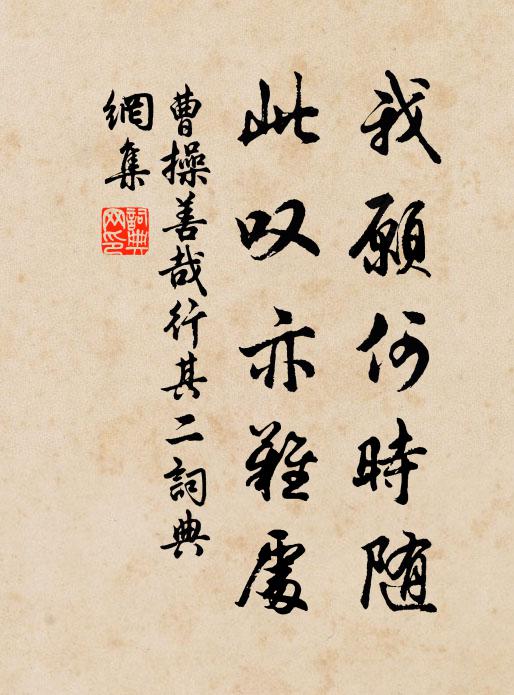 我願何時随
此叹亦難處
曹操善哉行其二詞典
網集
詞典网印